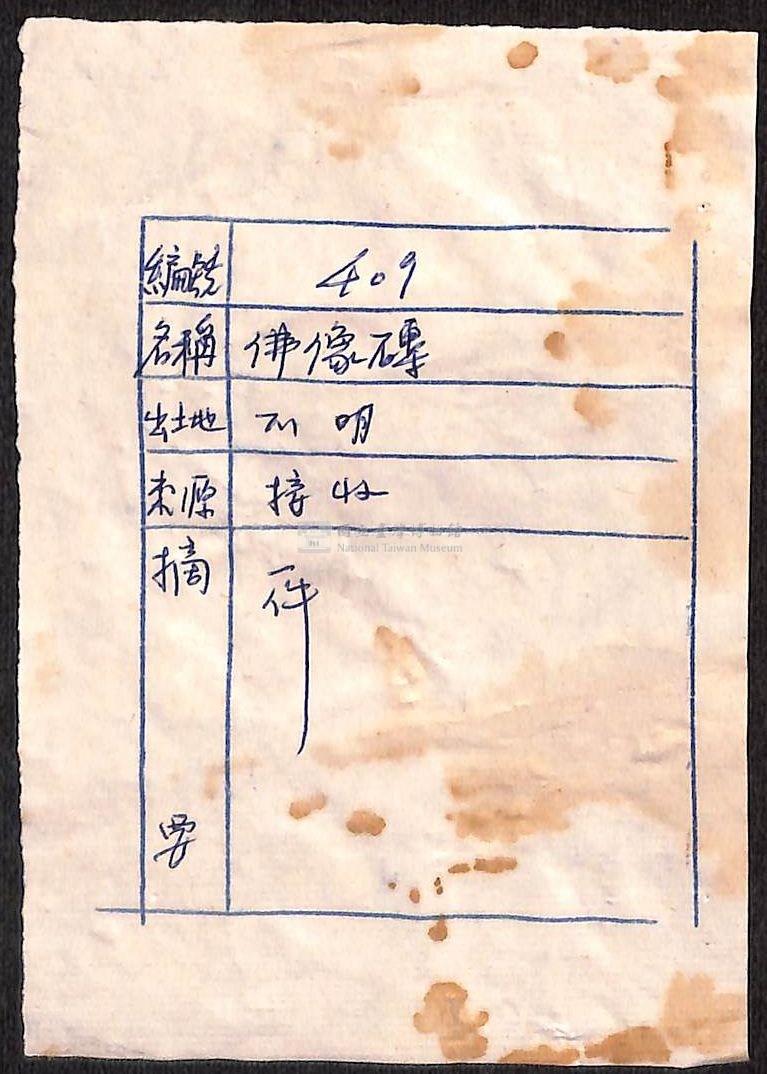 編號 409
名稱 佛像磚
出土地 不明
來源 接收
國立臺灣博物館
National Taiwan Museum
摘要 一件